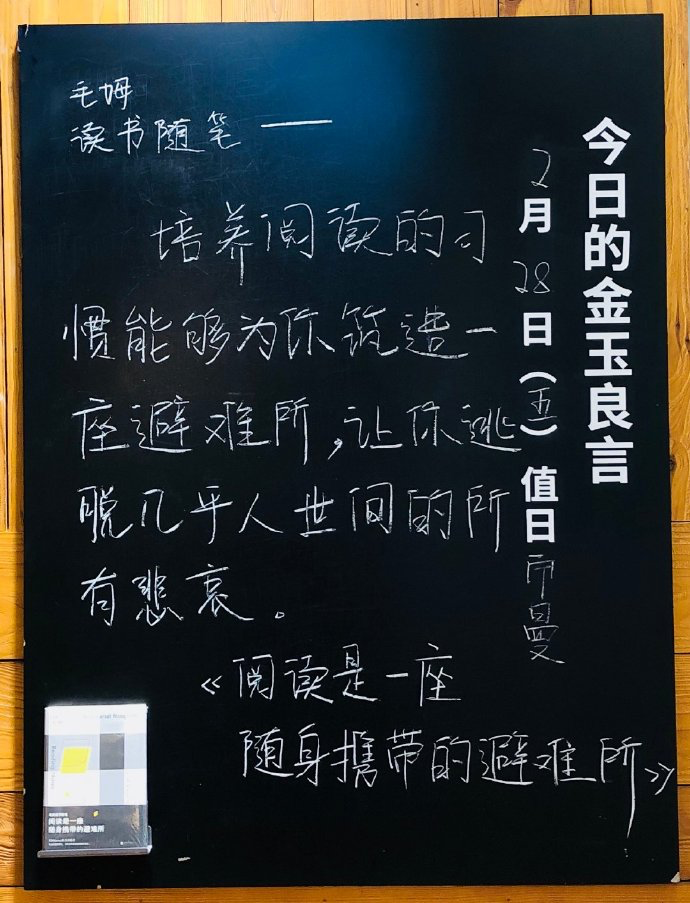 今日的金玉良言
2月28日（五）值日 帀曼
毛姆
读书随笔——
培养阅读的习
惯能够为你筑造一
座避难所，让你逃
脱几乎人世间的所
有悲哀。
《阅读是一座
随身携带的避难所》
阅读是一座
随身携带的避难所